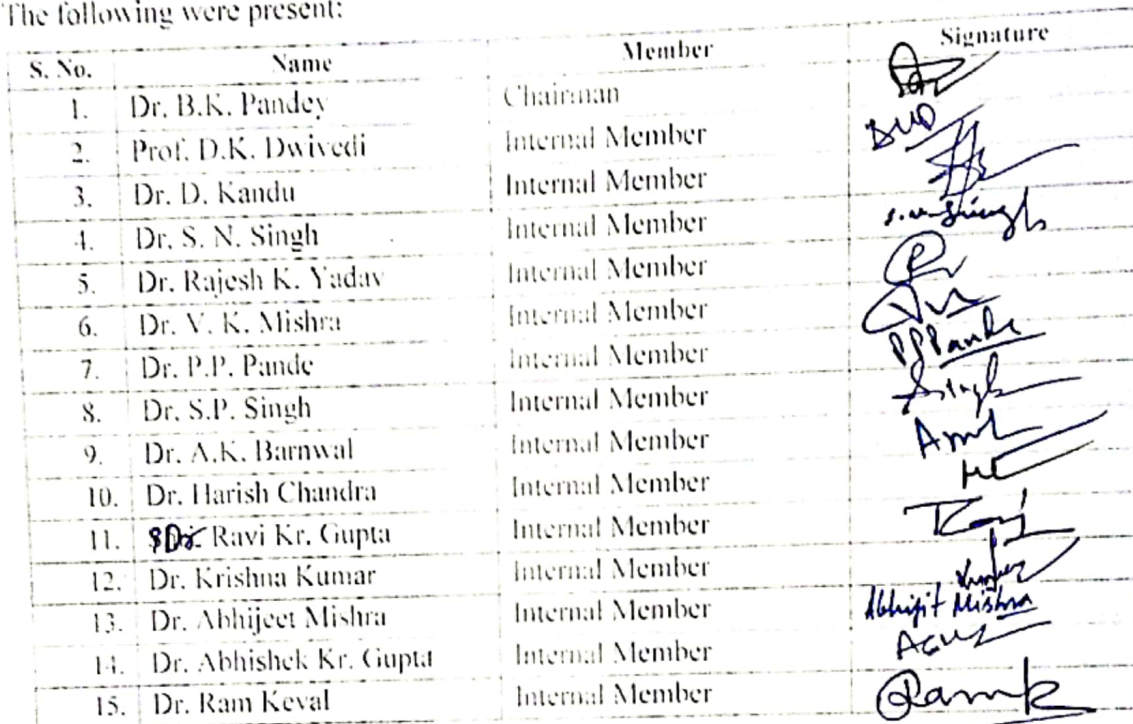 The following were present:
S. No. Name Member Signature
1. Dr. B.K. Pandey Chairman
2. Prof. D.K. Dwivedi Internal Member
3. Dr. D. Kandu Internal Member
4. Dr. S. N. Singh Internal Member S.N. Singh
5. Dr. Rajesh K. Yadav Internal Member
6. Dr. V. K. Mishra Internal Member
7. Dr. P.P. Pande Internal Member PPPande
8. Dr. S.P. Singh Internal Member Singh
9. Dr. A.K. Barnwal Internal Member
10. Dr. Harish Chandra Internal Member
11. Dr. Ravi Kr. Gupta Internal Member
12. Dr. Krishna Kumar Internal Member
13. Dr. Abhijeet Mishra Internal Member Abhijit Mishra
14. Dr. Abhishek Kr. Gupta Internal Member
15. Dr. Ram Keval Internal Member Ramk